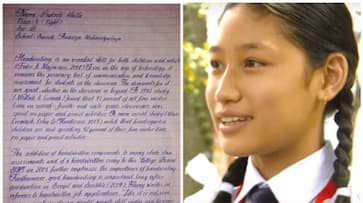 Name: Prakriti Malla
Class: 8 (Eight)
Sec: 'A'
School: Sainik Awasiya Mahavidyalaya
Handwriting is an essential skill for both children and adults
(Feder & Majnemer, 2007) Even in the age of technology, it
remains the primary tool of communication and knowledge
assessment for students in the classroom. The demands for it
are great, whether in the classroom or beyond. A 1992 study
(McHale & Cermak) found that 85 percent of all fine motor
time in second-, fourth- and sixth-grade classrooms was
spent on paper and pencil activities. A more recent study (Marr,
Cermak, Cohn & Henderson 2003) noted that kindergarten
children are now spending 42 percent of their fine motor time
on paper and pencil activities.
The addition of handwritten components to many state
assessments and of a handwritten essay to the College Board
SATs in 2005 further emphasize the importance of handwriting
Furthermore, good handwriting is important long after
graduation
reference to handwritten job applications,